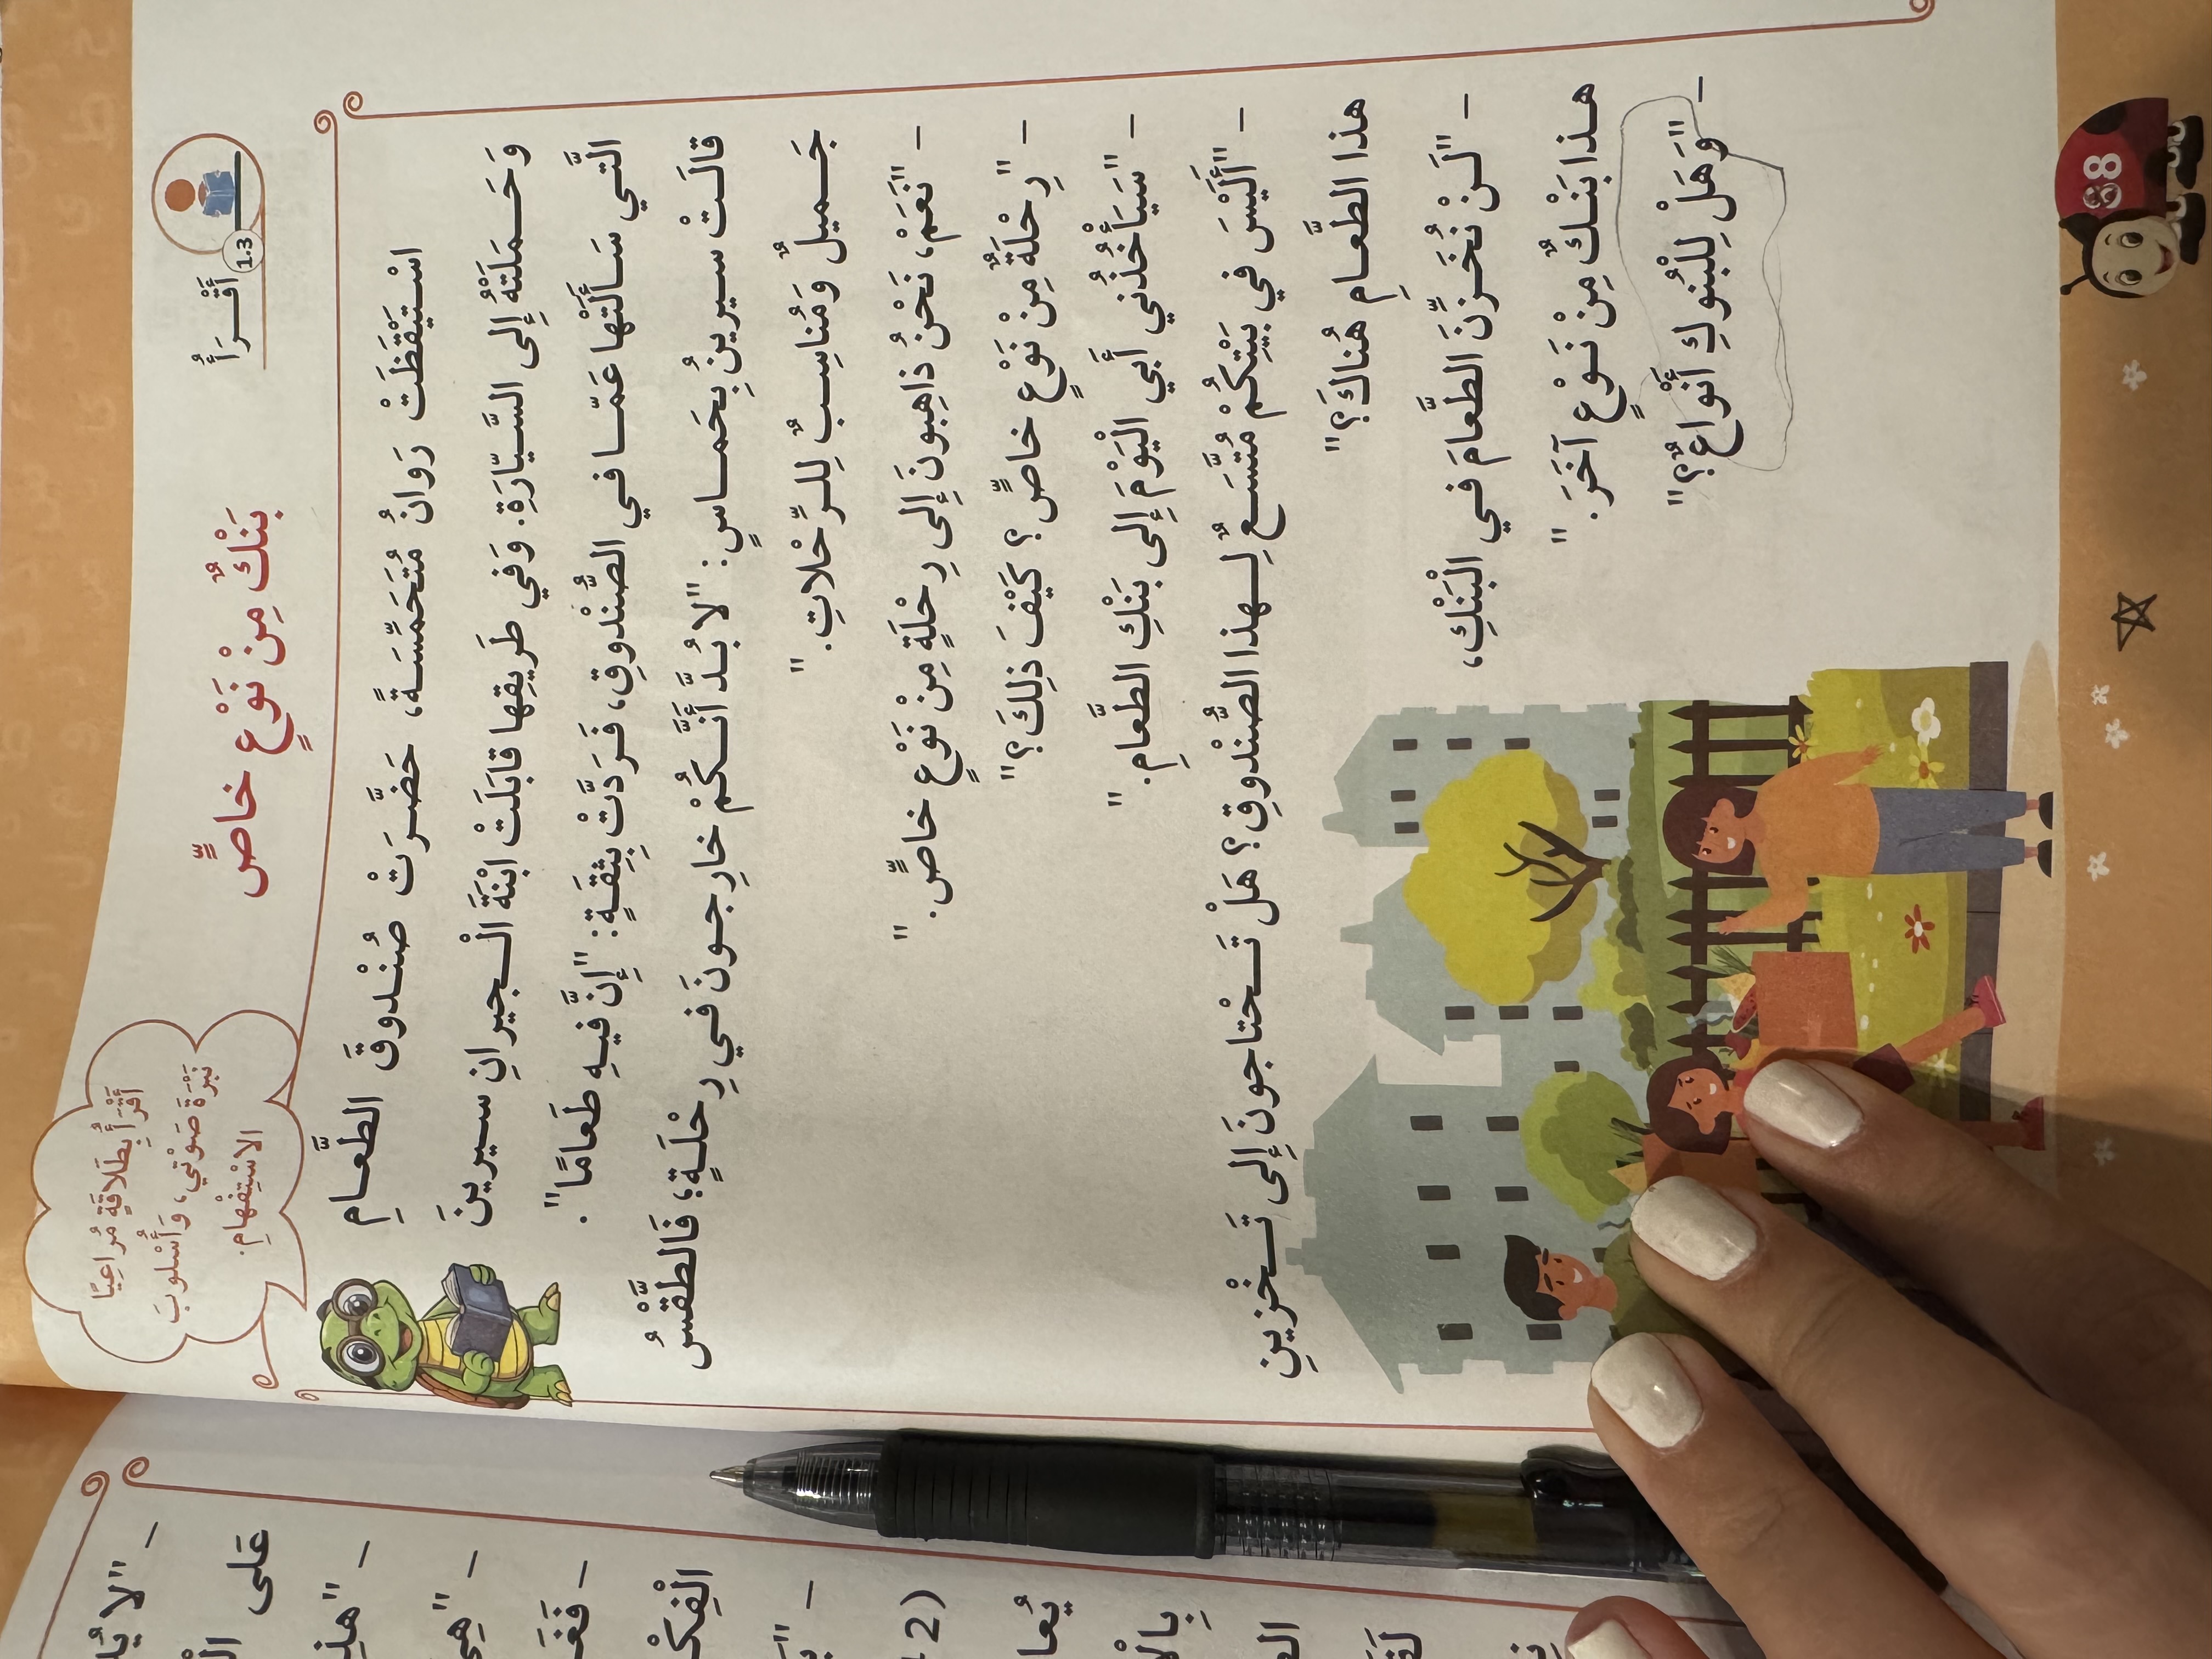 أَقْــرَأُ
1.3
بَنْكٌ مِنْ نَوْعٍ خاصٍّ
أَقْرَأُ بِطَلاقَةٍ مُراعِيًا
نَبْرَةَ صَوْتي، وَأُسْلوبَ
الِاسْتِفْهامِ.
اسْتَيْقَظَتْ رَوانُ مُتَحَمِّسَةً، حَضَّرَتْ صُنْدوقَ الطَّعامِ
وَحَمَلَتْهُ إِلى السَّيّارَةِ. وَفي طَريقِها قابَلَتْ ابْنَةَ الْجيرانِ سيرينَ
الَّتي سَأَلَتْها عَمّا في الصُّنْدوقِ، فَرَدَّتْ بِثِقَةٍ: "إِنَّ فيهِ طَعامًا".
قالَتْ سيرينُ بِحَماسٍ: "لا بُدَّ أَنَّكُمْ خارِجونَ في رِحْلَةٍ؛ فَالطَّقْسُ
جَميلٌ وَمُناسِبٌ لِلرِّحْلاتِ."
– "نَعَمْ، نَحْنُ ذاهِبونَ إِلى رِحْلَةٍ مِنْ نَوْعٍ خاصٍّ."
– "رِحْلَةٌ مِنْ نَوْعٍ خاصٍّ؟ كَيْفَ ذلِكَ؟"
– "سَيَأْخُذُني أَبي الْيَوْمَ إِلى بَنْكِ الطَّعامِ."
– "أَلَيْسَ في بَيْتِكُمْ مُتَّسَعٌ لِهذا الصُّنْدوقِ؟ هَلْ تَحْتاجونَ إِلى تَخْزينِ
هذا الطَّعامِ هُناكَ؟"
– "لَنْ نُخَزِّنَ الطَّعامَ في الْبَنْكِ،
هذا بَنْكٌ مِنْ نَوْعٍ آخَرَ."
– "وَهَلْ لِلْبُنوكِ أَنْواعٌ؟"
– "لا
عَلى
– "هذِ
– "هِيَ
– فَغَ
الْفِكْ
– "
2)
يُعا
بِالْ